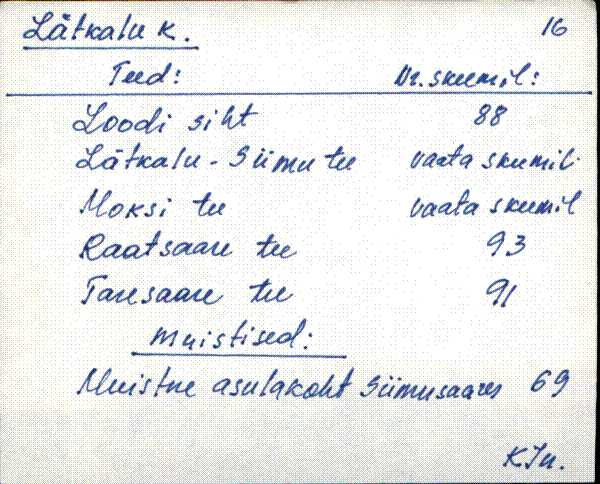 Lätkalu k. 16
Teed: Nr. skeemil:
Loodi siht 88
Lätkalu - Siimu tee vaata skeemil
Moksi tee vaata skeemil
Raatsaare tee 93
Taresaare tee 91
Muistised:
Muistne asulakoht Siimusaares 69